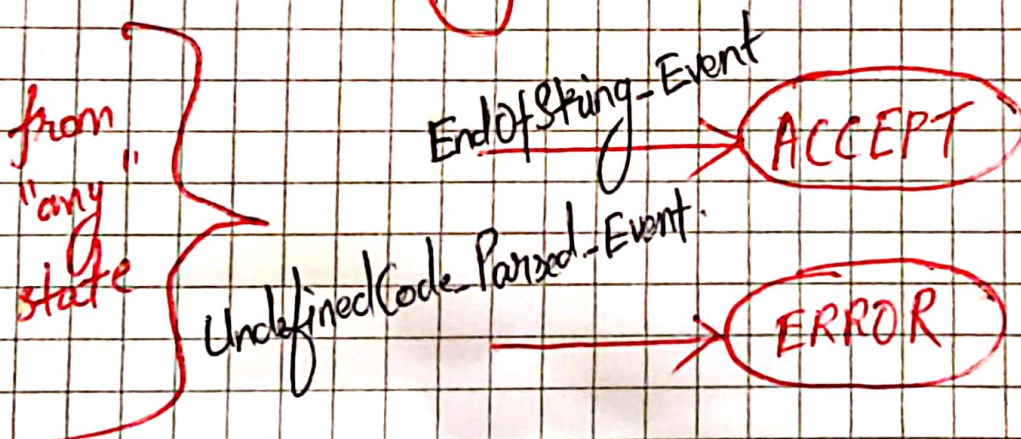 from
"any"
state
EndOfString_Event
ACCEPT
UndefinedCode_Parsed_Event.
ERROR